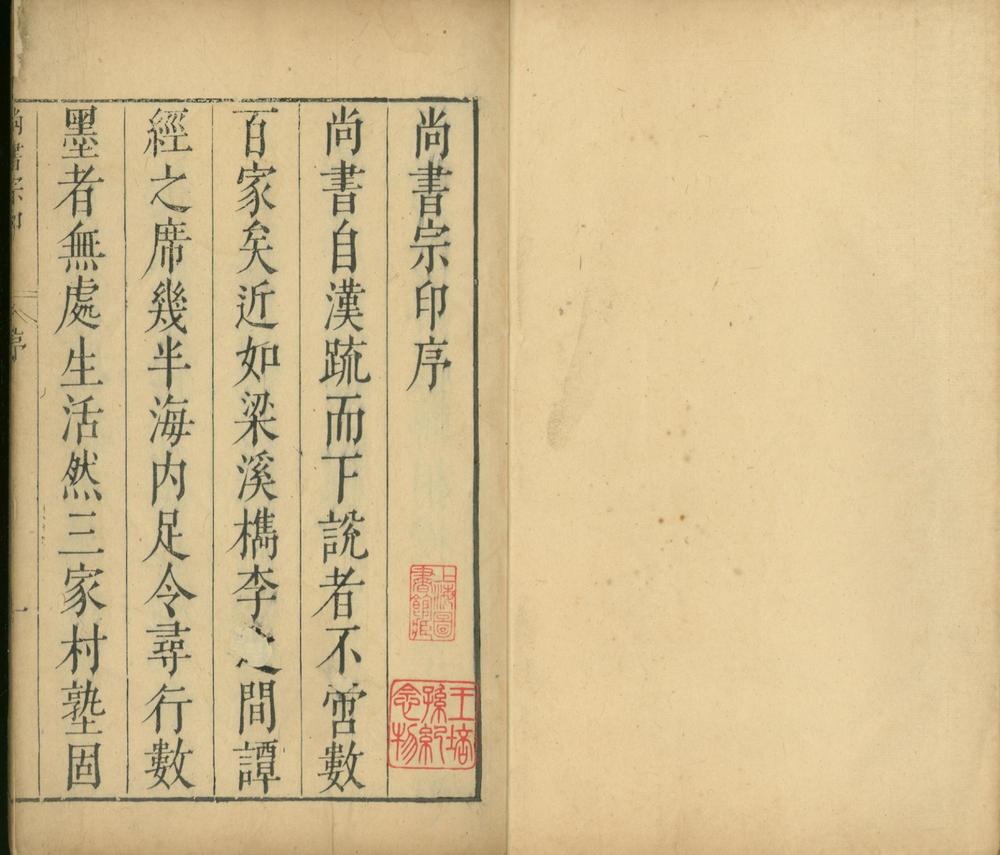 尚書宗印序
尚書自漢疏而下說者不啻數
百家矣近如梁溪檇李之間譚
經之席幾半海内足令尋行數
墨者無處生活然三家村塾固
尚書宗印
序
一
上海圖書館藏
王培孫紀念物